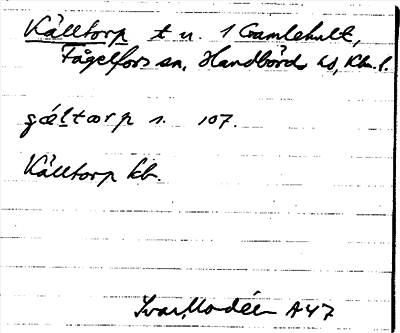 Källtorp t u. 1 Gamlehult,
Fågelfors sn, Handbörds hd, Klm. l.
gæltærp s. 107.
Källtorp kb.
Ivar Modéer A47